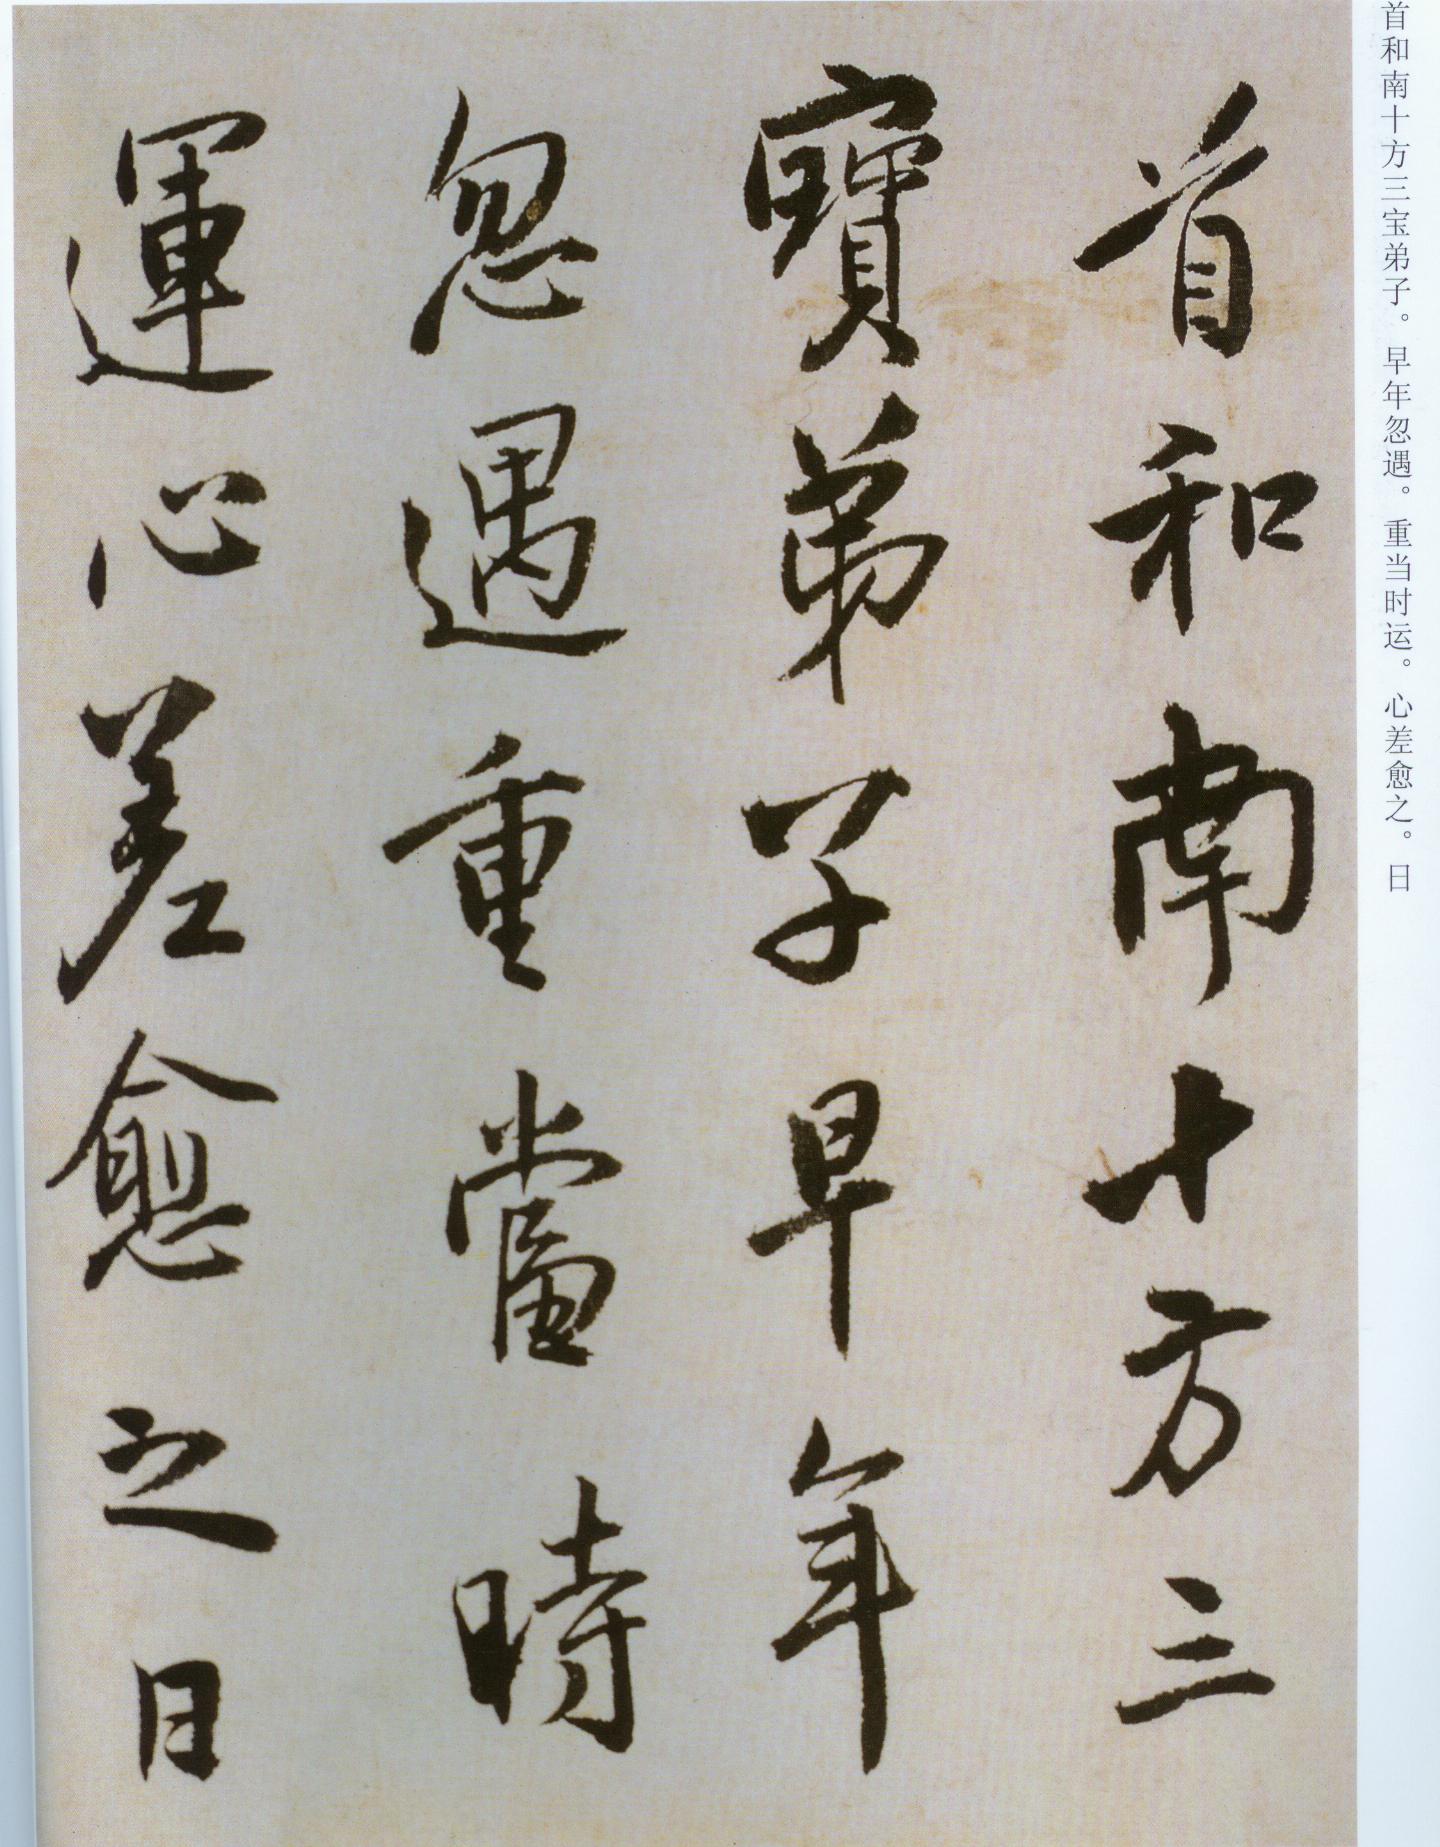 首和南十方三宝弟子。早年忽遇。重当时运。心差愈之。日
首和南十方三
寶弟子早年
忽遇重當時
運心差愈之日